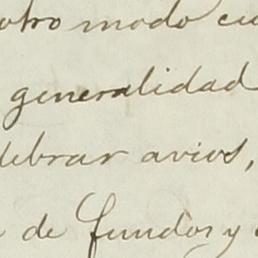 otro modo cu
generalidad
lebrar avios,
de fundos y